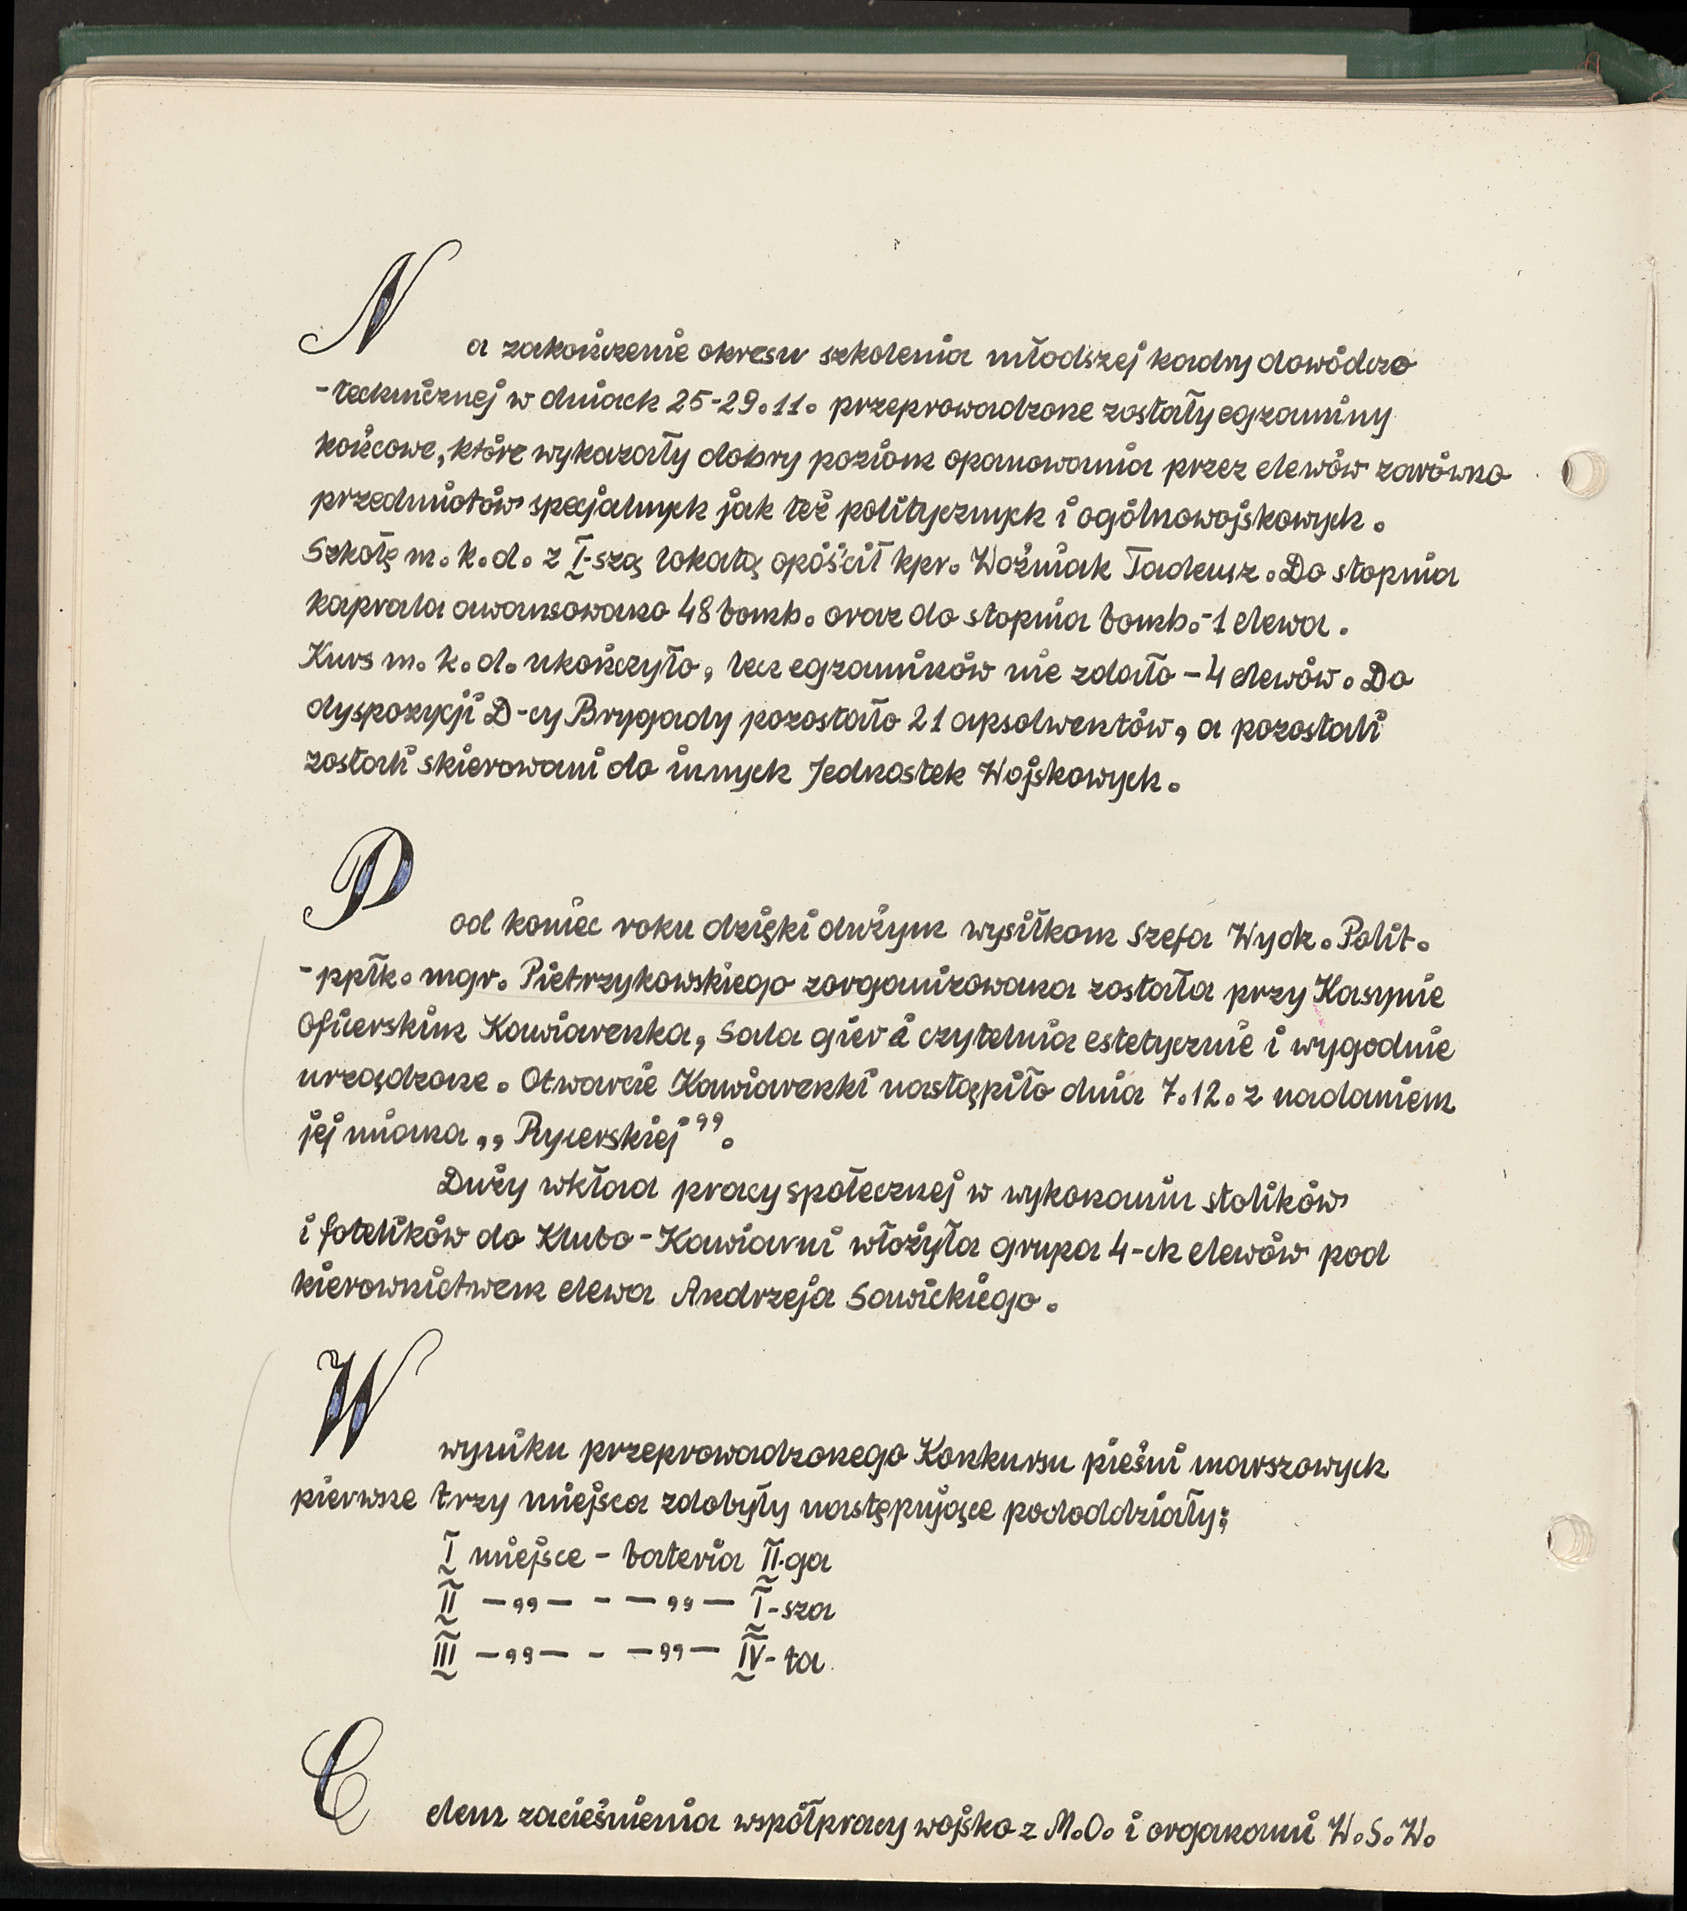 Na zakończenie okresu szkolenia młodszej kadry dowódczo
-technicznej w dniach 25-29.11. przeprowadzone zostały egzaminy
końcowe, które wykazały dobry poziom opanowania przez elewów zarówno
przedmiotów specjalnych jak też politycznych i ogólnowojskowych.
Szkołę m.k.d. z I-szą lokatą opóścił kpr. Woźniak Tadeusz. Do stopnia
kaprala awansowano 48 bomb. oraz do stopnia bomb.-1 elewa.
Kurs m.k.d. ukończyło, lecz egzaminów nie zdało - 4 elewów. Do
dyspozycji D-cy Brygady pozostało 21 apsolwentów, a pozostali
zostali skierowani do innych Jednostek Wojskowych.
Pod koniec roku dzięki dużym wysiłkom Szefa Wydz. Polit.
- ppłk. mgr. Pietrzykowskiego zorganizowana została przy Kasynie
Oficerskim Kawiarenka, Sala gier i czytelnia estetycznie i wygodnie
urządzone. Otwarcie Kawiarenki nastąpiło dnia 7.12. z nadaniem
jej miana „Rycerskiej”.
Duży wkład pracy społecznej w wykonaniu stolików
i fotelików do Klubo-Kawiarni włożyła grupa 4-ch elewów pod
kierownictwem elewa Andrzeja Sawickiego.
W wyniku przeprowadzonego Konkursu pieśni marszowych
pierwsze trzy miejsca zdobyły następujące pododdziały:
I miejsce - bateria II-ga
II -„- - -„- I-sza
III -„- - -„- IV-ta
Celem zacieśnienia współpracy wojsko z M.O. i organami W.S.W.